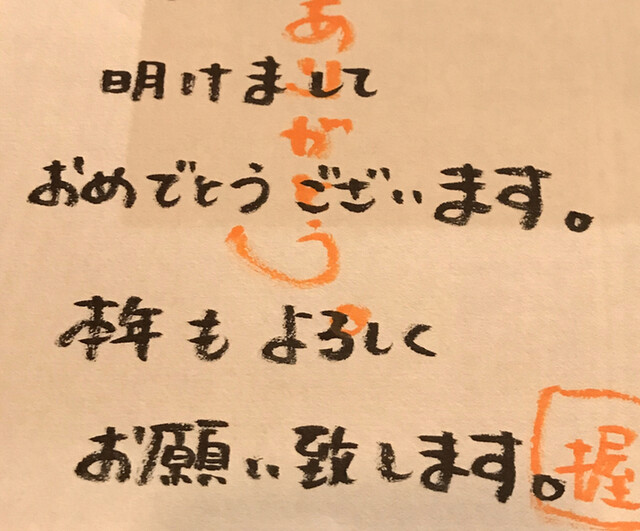 明けまして
おめでとうございます。
本年もよろしく
お願い致します。
ありがとう。
握